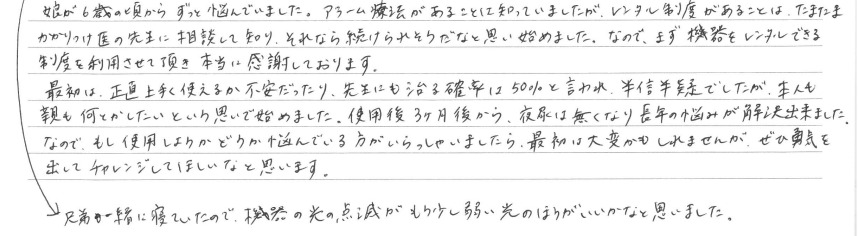 娘が6歳の頃からずっと悩んでいました。アラーム療法があることは知っていましたが、レンタル制度があることは、たまたま
かかりつけ医の先生に相談して知り、それなら続けられそうだなと思い始めました。なので、まず機器をレンタルできる
制度を利用させて頂き本当に感謝しております。
最初は、正直上手く使えるか不安だったり、先生にも治る確率は50%と言われ、半信半疑でしたが、本人も
親も何とかしたいという思いで始めました。使用後3ヶ月後から、夜尿は無くなり長年の悩みが解決出来ました。
なので、もし使用しようかどうか悩んでいる方がいらっしゃいましたら、最初は大変かもしれませんが、ぜひ勇気を
出してチャレンジしてほしいなと思います。
→兄弟一緒に寝ていたので、機器の光の点滅がもう少し弱い光のほうがいいかなと思いました。